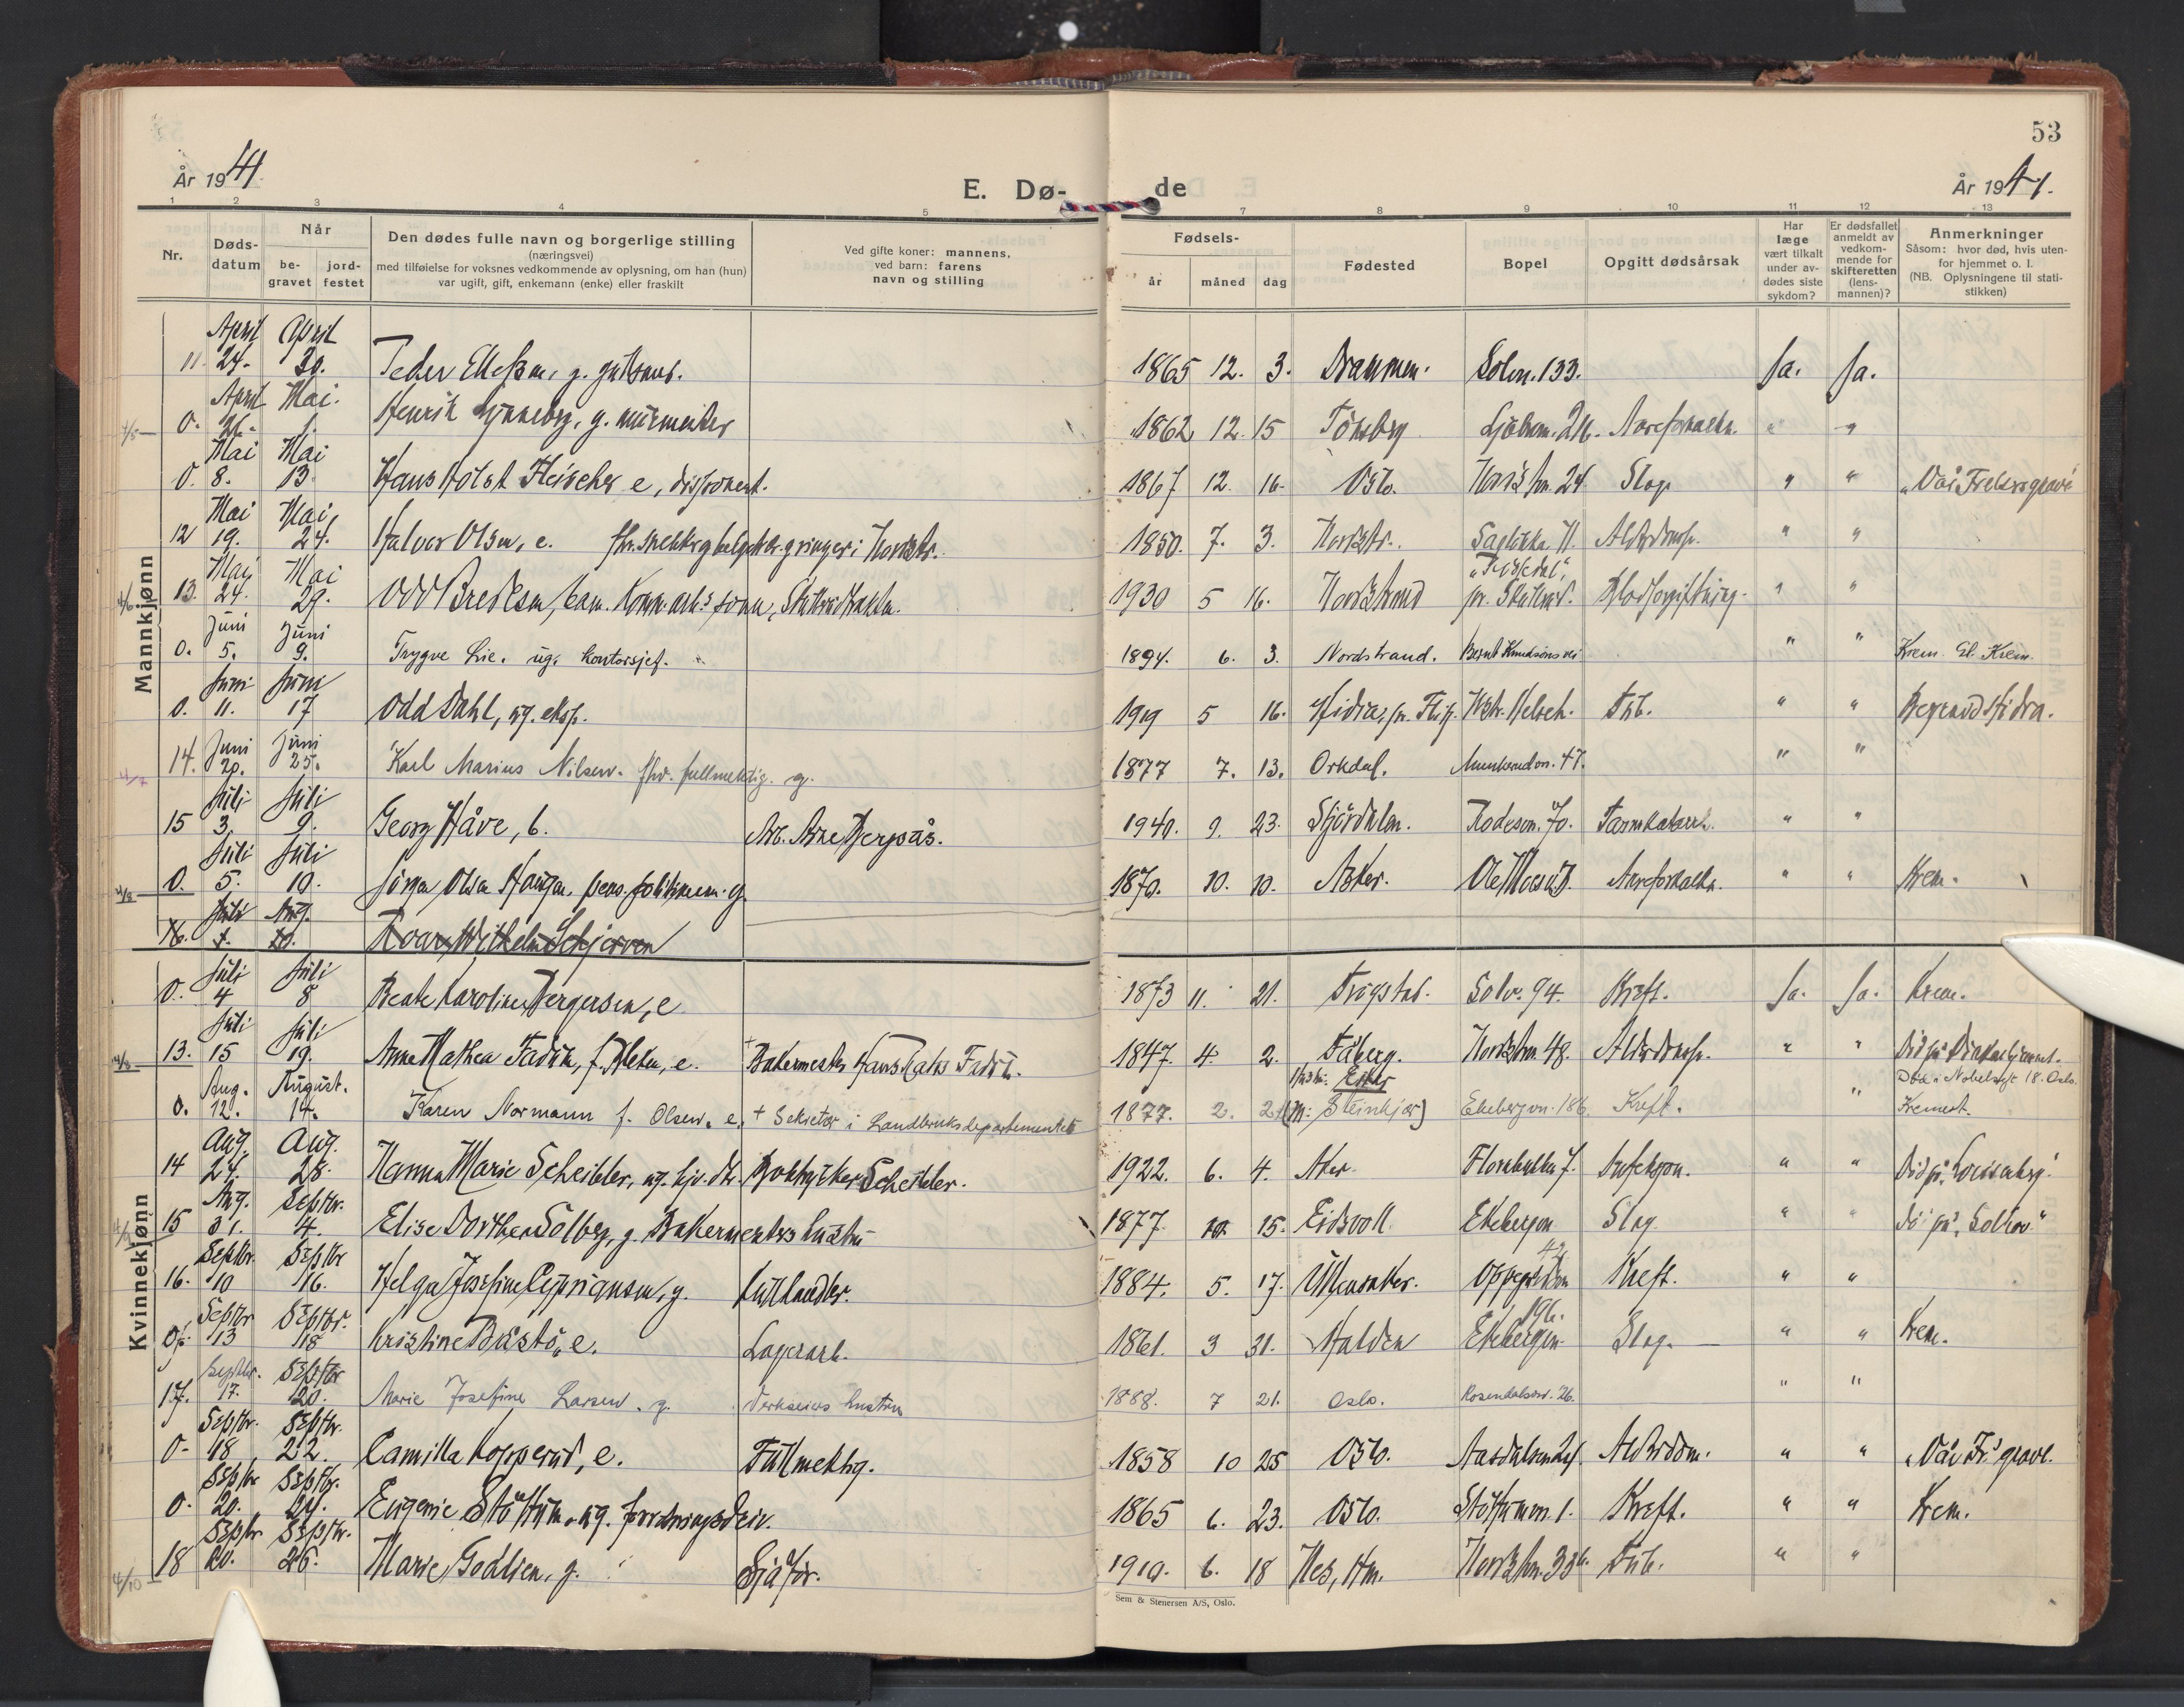 53
År 1941.
E. Dø-
de
År 1941.
1 2 3 4 5 7 8 9 10 11 12 13
Nr.
Døds-
datum
Når
be-
gravet
jord-
festet
Den dødes fulle navn og borgerlige stilling
(næringsvei)
med tilføielse for voksnes vedkommende av oplysning, om han (hun)
var ugift, gift, enkemann (enke) eller fraskilt
Ved gifte koner: mannens,
ved barn: farens
navn og stilling
Fødsels-
år måned dag
Fødested
Bopel
Opgitt dødsårsak
Har
læge
vært tilkalt
under av-
dødes siste
sykdom?
Er dødsfallet
anmeldt av
vedkom-
mende for
skifteretten
(lens-
mannen)?
Anmerkninger
Såsom: hvor død, hvis uten-
for hjemmet o. l.
(NB. Oplysningene til stati-
stikken)
Mannkjønn
April April
11. 24. 30. Peder Ellefsen, g. 1865 12. 3. Drammen. Solvn. 133. Ja. Ja.
April Mai.
0. 26. 1. Henrik g. murmester 1862 12. 15 Tönsberg Ljabrvn. 26. " "
Mai Mai
0. 8. 13. Hans Holst Fleischer e, disponent. 1867 12. 16. Oslo. Nordstrvn. 24 Slag " " "Vår Frelsers gravl.
Mai Mai
12 19. 24. Halvor Olsen, e. fhv. snekker og ringer i Nordstr. 1850. 7. 3. Nordstr. Alderdomssv. " "
Mai Mai
13. 24. 29. Odd Bredesen, barn. Komm.arb.s sønn, 1930 5 16. Nordstrand Blodforgiftning. " "
Juni Juni
0. 5. 9. Trygve Lie. ug. kontorsjef. 1894. 6. 3. Nordstrand. Bernt Knudsens vei " " Krem. Øl. Krem.
Juni Juni
0. 11. 17 Odd Dahl, ug. eksp. 1919 5 16. Hidra, pr. Flekk. Tub. " " Begravd Hidra.
Juni Juni
14. 20. 25. Karl Marius Nilsen. fhv. fullmektig. g. 1877 7. 13. Orkdal. Munkerudvn. 47. " "
Juli Juli
15 3. 9. Georg Håve, b. Arb. Arne Herpås. 1940. 9. 23. Stjördalen. Tarmkatarrh. " "
Juli Juli
0. 5. 10. Jörgen Olsen Haugen, pens. politimann. g. 1870. 10. 10. Asker. Ole Moesv. Åreforkalkn. " " Krem.
Juli Aug.
16. 7. 20. Roar Wilhelm Schjerven
Kvinnekjønn
Juli Juli
0. 4 8 Beate Karoline Bergersen, e 1873 11. 21. Trögstad. Solv. 94. Kreft. Ja. Ja. Krem.
Juli Juli
13. 15 19. Anne Mathea Fadum, f. e. + Bakermester Hans Fadum. 1847. 4. 2. Nordstrvn. 48. Alderdomssv. " "
Aug. August.
0. 12. 14. Karen Normann f. Olsen. e. + Sekretær i Landbruksdepartementet 1877. 2. 21 Eiker (M: Steinkjær) Ekebergvn. 186 Kreft. " Död i Nobelsgt. 18. Oslo. Kremert.
Aug. Aug.
14 24. 28. Hanna Marie Scheibler, ug. hjv. dtr. Boktrykker Scheibler. 1922. 6. 4. Aker. Infeksjon. " "
Aug. Septbr.
15 31. 4. Elise Dorthea Solberg, g. Bakermesters hustru 1877. 10. 15. Eidsvoll Ekebergvn Slag. " " Dö på "Solhov."
Septbr. Septbr
16. 10 16. Helga Josefine Cyprianson, g. Kullhandler. 1884. 5. 17. Ullensaker. Oppegårdvn 42. Kreft. " "
Septbr Septbr.
0. 13 18 Kristine Båstö, e. Lagerarb. 1861. 3 31. Halden Ekebergvn 196. Slag. " " Krem.
Septbr. Septbr
17. 17. 20. Marie Josefine Larsen. g. Verkseiers hustru 1888. 7 21. Oslo. Rosendalsv. 26. " "
Septbr. Septbr.
0. 18 22. Camilla Kopperud, e. Fullmektig. 1858 10 25 Oslo. Alderdom. " " "Vår Fr.s gravl.
Septbr Septbr.
0. 20. 24. Eugenie ug. forretningsdriv. 1865 6. 23. Oslo. Kreft. " " Krem.
Septbr Septbr.
18 20. 26. Marie Godlien, g. Sjåför. 1910. 6. 18 Nes, Hm. Nordstrvn. 33b. Tub. " "
Sem & Stenersen A/S, Oslo.